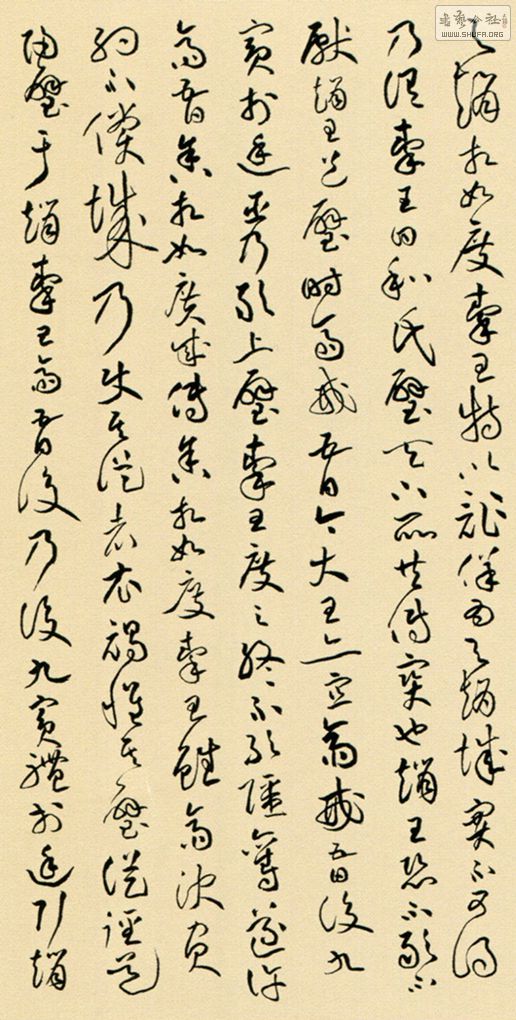 書藝公社
WWW.SHUFA.ORG
予趙相如度秦王特以詐佯為予趙城實不可得
乃謂秦王曰和氏璧天下所共傳寶也趙王恐不敢不
獻趙王送璧時齋戒五日今大王亦宜齋戒五日設九
賓於廷臣乃敢上璧秦王度之終不敢強奪遂許
齋五日舍相如廣成傳舍相如度秦王雖齋決負
約不償城乃使其從者衣褐懷其璧從徑道
歸璧于趙秦王齋五日後乃設九賓禮於廷引趙